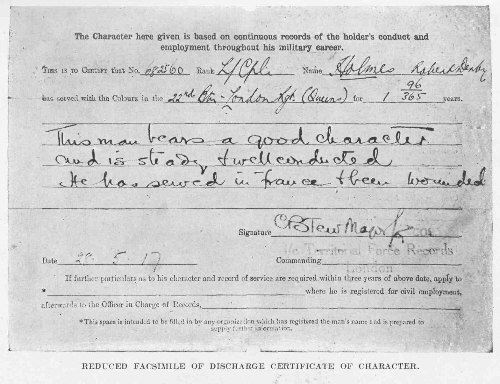 The Character here given is based on continuous records of the holder's conduct and
employment throughout his military career.
THIS IS TO CERTIFY that No. 682560 Rank L/Cpl. Name Holmes Robert Derby
has served with the Colours in the 22nd Bn. London Rgt. (Queens) for 1 96/365 years.
This man bears a good character
and is steady & well conducted
He has served in France & been wounded
Signature Major
i/c Territorial Force Records
Commanding
London
Date 26.5.17
If further particulars as to his character and record of service are required within three years of above date, apply to
* where he is registered for civil employment,
afterwards to the Officer in Charge of Records,
*This space is intended to be filled in by any organization which has registered the man's name and is prepared to
supply further information.
REDUCED FACSIMILE OF DISCHARGE CERTIFICATE OF CHARACTER.